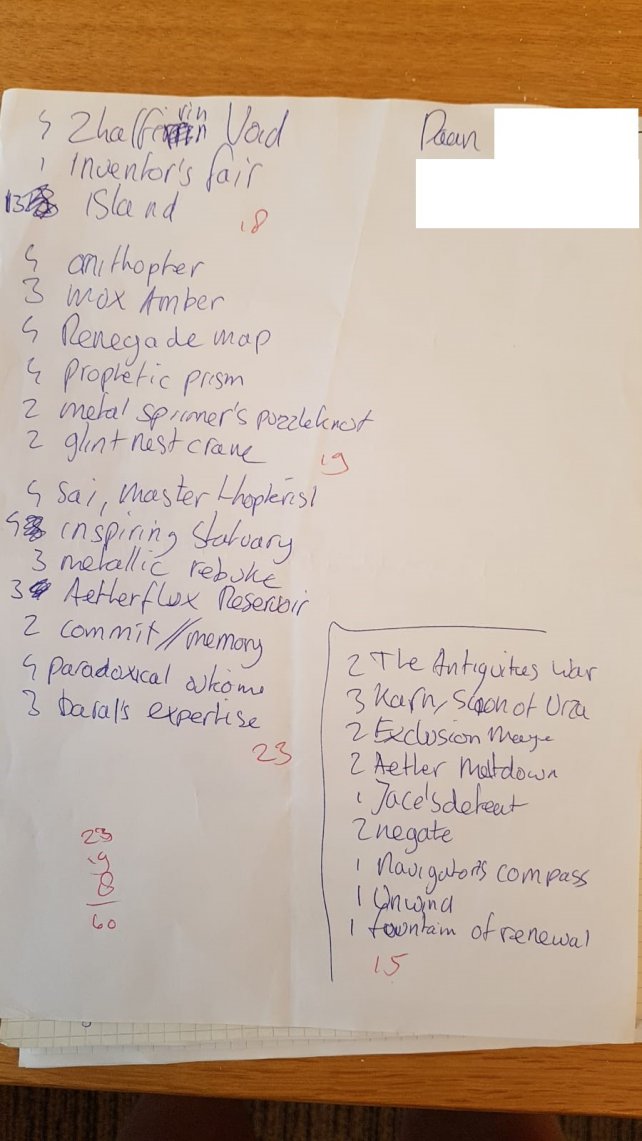 4 Zhalfirin Void
1 Inventor's fair
13 Island
18
4 ornithopter
3 mox Amber
4 Renegade map
4 Prophetic prism
2 metal spinner's puzzleknot
2 glint nest crane
19
4 Sai, master thopterist
4 inspiring statuary
3 metallic rebuke
3 Aetherflux Reservoir
2 commit//memory
4 paradoxical outcome
3 baral's expertise
23
23
19
8
60
Daan
2 The Antiquities War
3 Karn, Scion of Urza
2 Exclusion Mage
2 Aether Meltdown
1 Jace's defeat
2 negate
1 Navigator's compass
1 Unwind
1 fountain of renewal
15